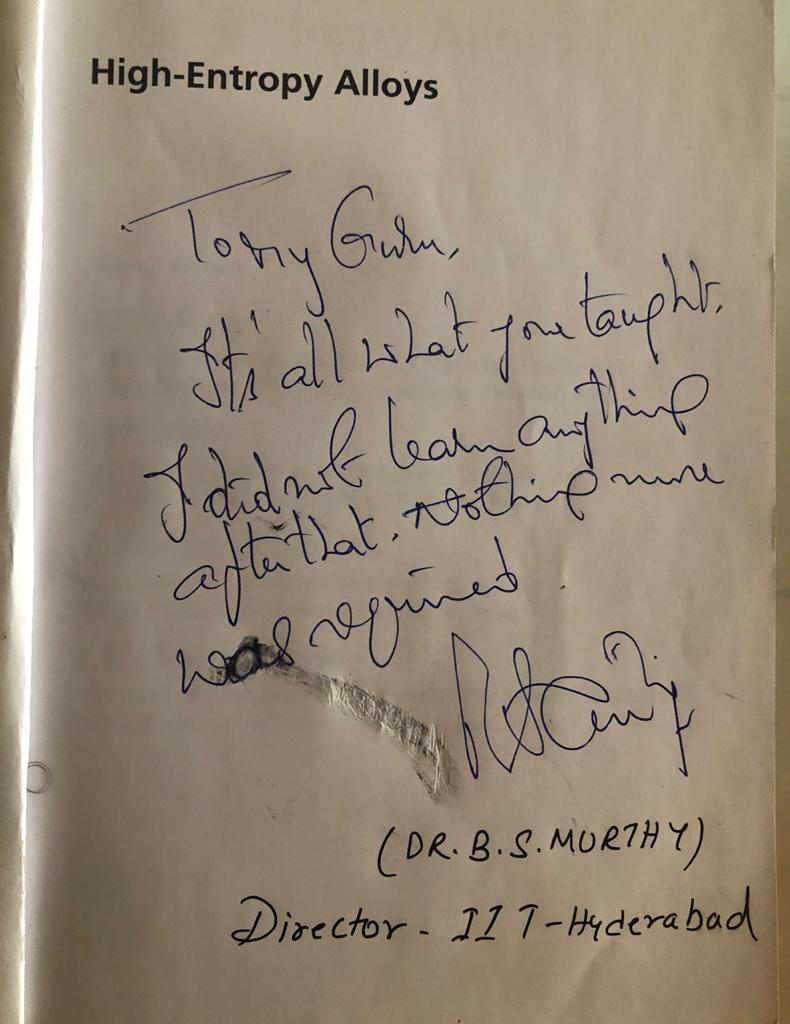 High-Entropy Alloys
To my Guru,
It's all what you taught.
I did not learn anything
after that. Nothing more
was required.
(DR. B. S. MURTHY)
Director - IIT-Hyderabad